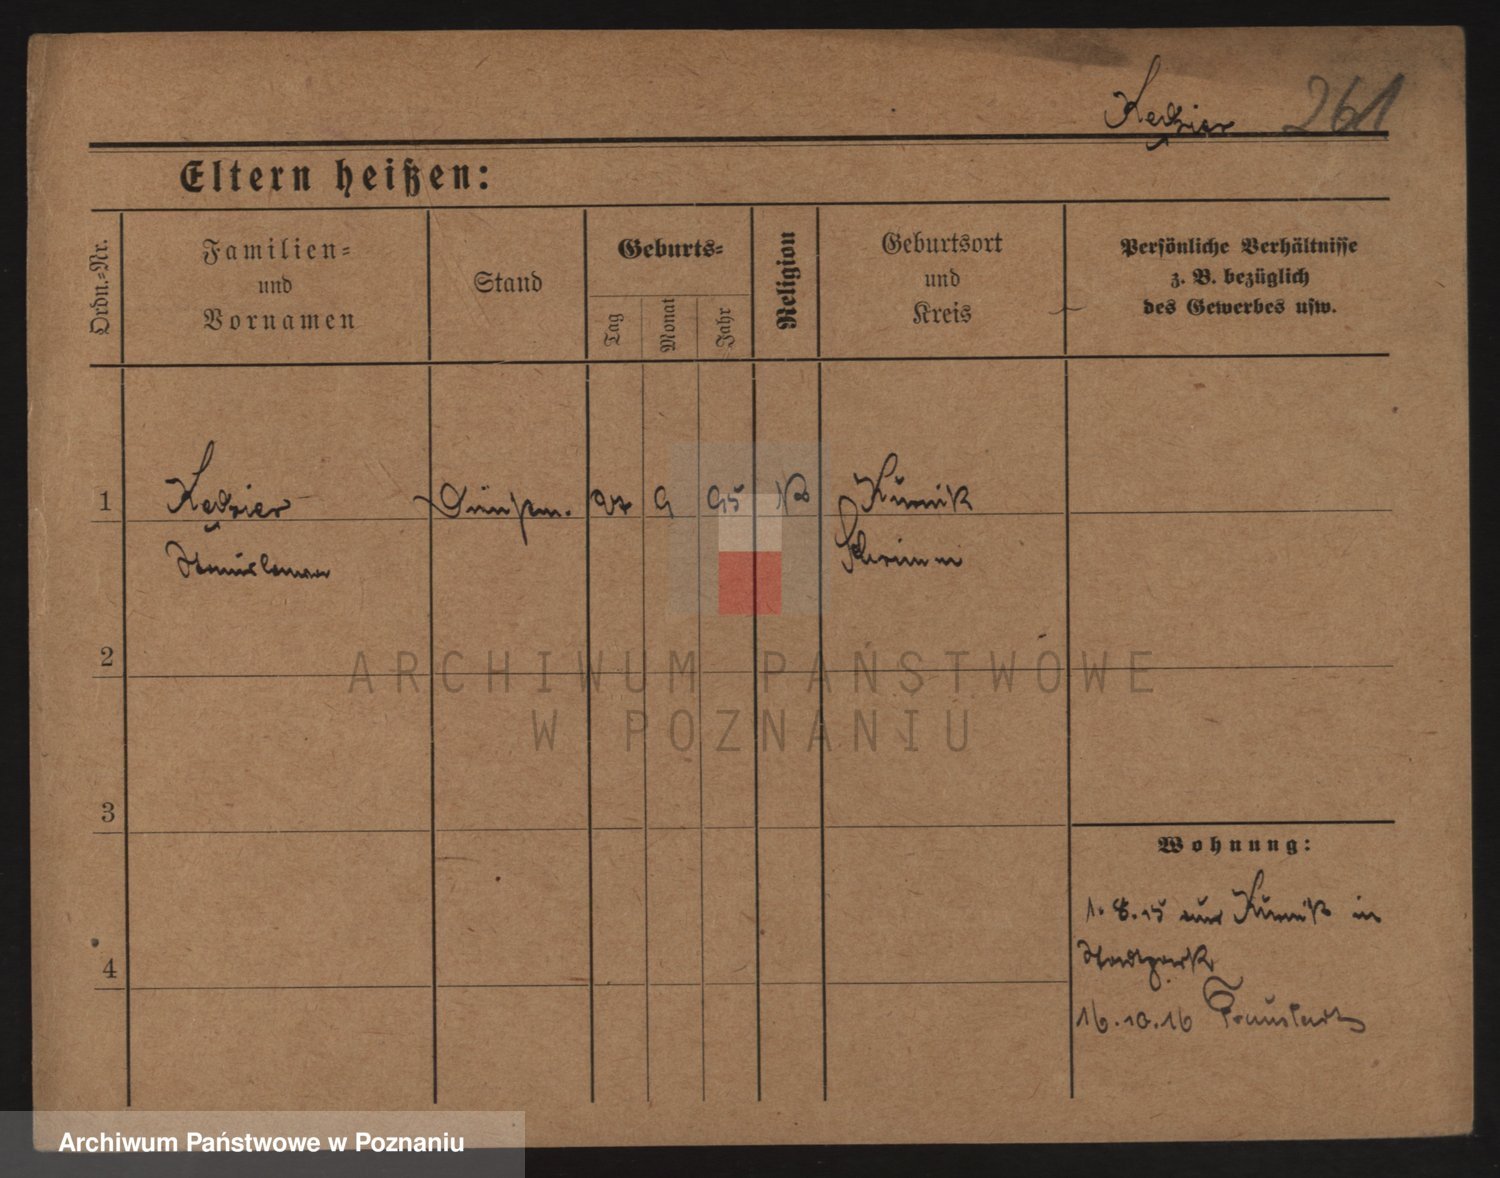 Kedzior 261
Eltern heißen:
Ordn.-Nr.
Familien-
und
Vornamen
Stand
Geburts-
Tag
Monat
Jahr
Religion
Geburtsort
und
Kreis
Persönliche Verhältnisse
z. B. bezüglich
des Gewerbes usw.
1 Kedzior 27 9 95 K Kurnik
Stanislawa Schrimm
ARCHIWUM PAŃSTWOWE
W POZNANIU
2
3
4
Wohnung:
1.8.15 aus Kurnik in
Stadtpark
16.10.16 Fraustadt
Archiwum Państwowe w Poznaniu